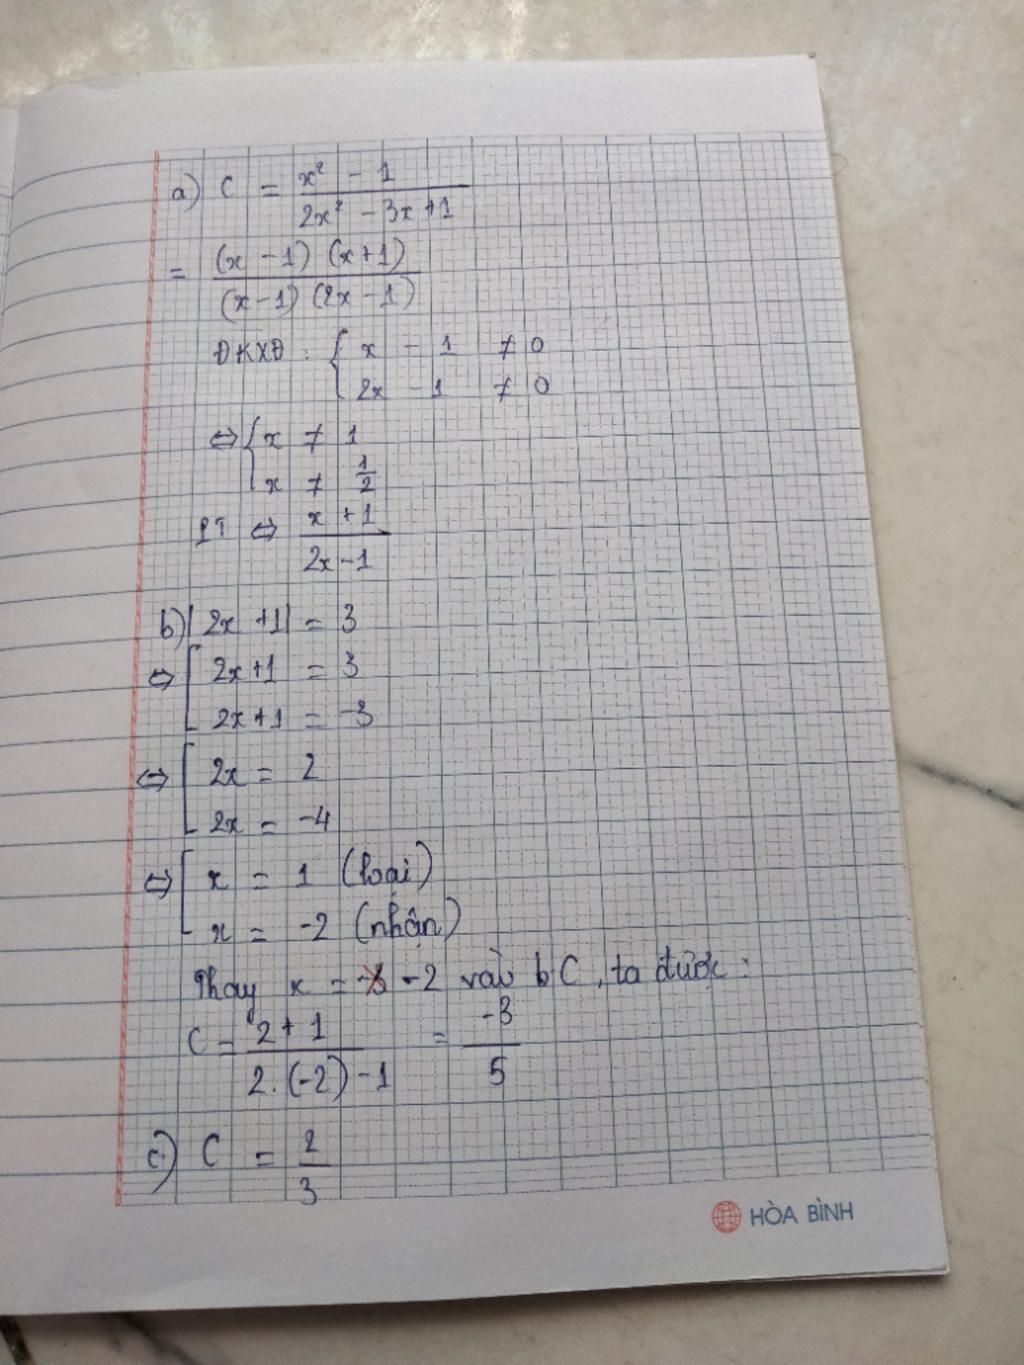 a) C = \frac{x² - 1}{2x² - 3x + 1}
= \frac{(x - 1) (x + 1)}{(x - 1) (2x - 1)}
ĐKXĐ : { x - 1 ≠ 0
2x - 1 ≠ 0
⇔ { x ≠ 1
x ≠ \frac{1}{2}
PT ⇔ \frac{x + 1}{2x - 1}
b) |2x + 1| = 3
⇔ [ 2x + 1 = 3
2x + 1 = -3
⇔ [ 2x = 2
2x = -4
⇔ [ x = 1 (loại)
x = -2 (nhận)
Thay x = -2 vào bC, ta được:
C = \frac{2 + 1}{2. (-2) - 1} = \frac{-3}{5}
c) C = \frac{2}{3}
HÒA BÌNH